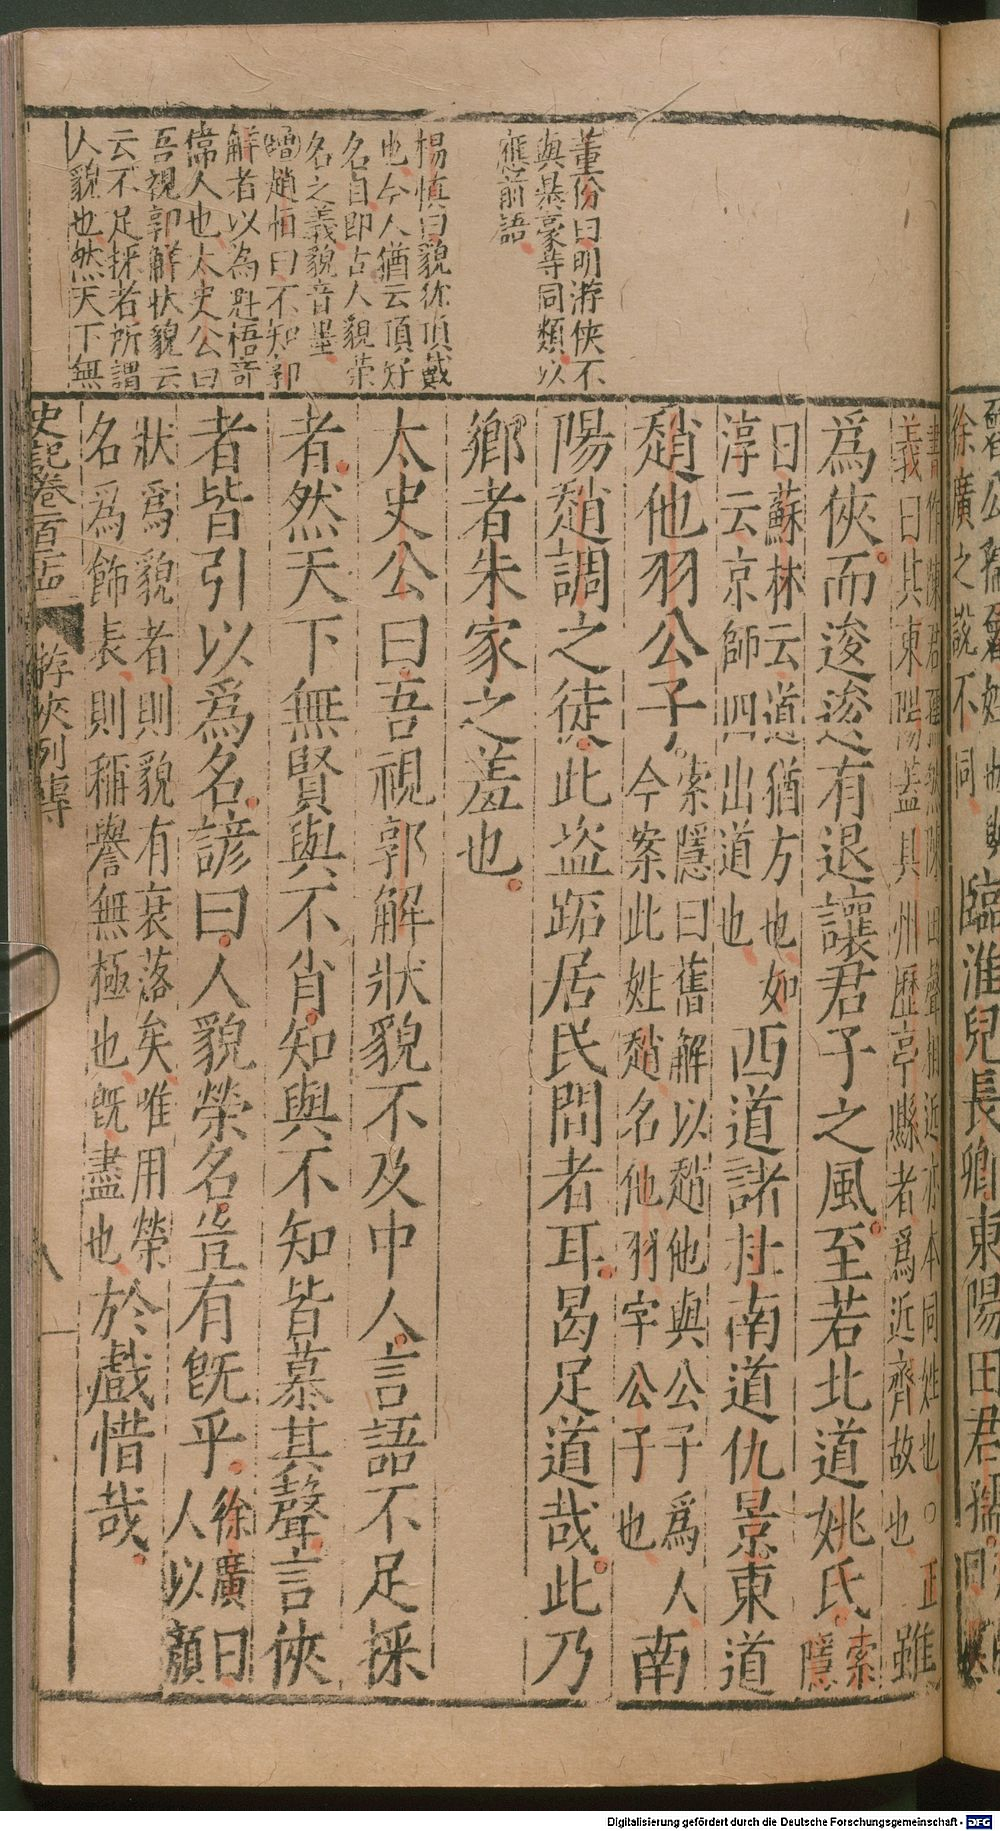 董份曰明游俠不
與暴豪等同類以
應前語
楊慎曰貌徐頂戴
也今人猶云頂好
名目即古人貌榮
名之義貌音墨
增趙恒曰不知郭
解者以為魁梧奇
偉人也太史公曰
吾視郭解狀貌云
云不足採者所謂
人貌也然天下無
義曰其東陽蓋貝州歷亭縣者爲近齊故也
雖
爲俠而逡逡有退讓君子之風至若北道姚氏索
隱
曰蘇林云道猶方也如
淳云京師四出道也
西道諸杜南道仇景東道
趙他羽公子索隱曰舊解以趙他與公子爲人
今案此姓趙名他羽字公子也
南
陽趙調之徒此盜跖居民間者耳曷足道哉此乃
鄉者朱家之羞也
太史公曰吾視郭解狀貌不及中人言語不足採
者然天下無賢與不肖知與不知皆慕其聲言俠
者皆引以爲名諺曰人貌榮名豈有旣乎徐廣曰
人以顏
狀爲貌者則貌有衰落矣唯用榮
名爲飾表則稱譽無極也旣盡也
於戲惜哉
史記卷百二十四
游俠列傳
八
徐廣之說不同
臨淮兒長卿東陽田君孺
Digitalisierung gefördert durch die Deutsche Forschungsgemeinschaft - DFG